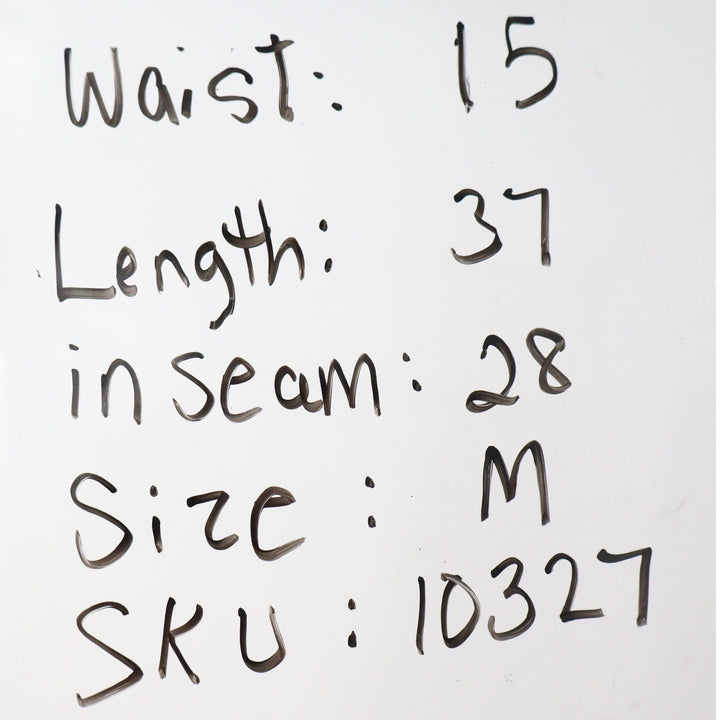 Waist: 15
Length: 37
inseam: 28
Size: M
SKU: 10327